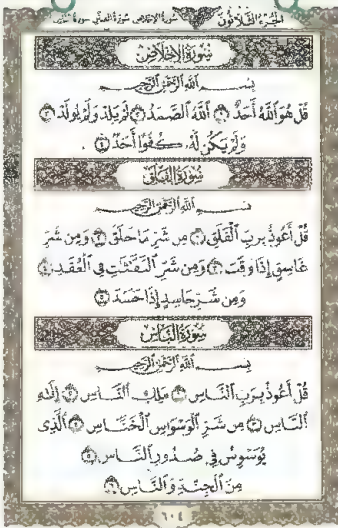 الجزء الثلاثون سورة الإخلاص سورة الفلق سورة الناس
سُورَةُ الإِخْلَاصِ
بِسْمِ اللَّهِ الرَّحْمَٰنِ الرَّحِيمِ
قُلْ هُوَ اللَّهُ أَحَدٌ ١ اللَّهُ الصَّمَدُ ٢ لَمْ يَلِدْ وَلَمْ يُولَدْ ٣
وَلَمْ يَكُن لَّهُ كُفُوًا أَحَدٌ ٤
سُورَةُ الْفَلَقِ
بِسْمِ اللَّهِ الرَّحْمَٰنِ الرَّحِيمِ
قُلْ أَعُوذُ بِرَبِّ الْفَلَقِ ١ مِن شَرِّ مَا خَلَقَ ٢ وَمِن شَرِّ
غَاسِقٍ إِذَا وَقَبَ ٣ وَمِن شَرِّ النَّفَّاثَاتِ فِي الْعُقَدِ ٤
وَمِن شَرِّ حَاسِدٍ إِذَا حَسَدَ ٥
سُورَةُ النَّاسِ
بِسْمِ اللَّهِ الرَّحْمَٰنِ الرَّحِيمِ
قُلْ أَعُوذُ بِرَبِّ النَّاسِ ١ مَلِكِ النَّاسِ ٢ إِلَٰهِ
النَّاسِ ٣ مِن شَرِّ الْوَسْوَاسِ الْخَنَّاسِ ٤ الَّذِي
يُوَسْوِسُ فِي صُدُورِ النَّاسِ ٥
مِنَ الْجِنَّةِ وَالنَّاسِ ٦
٦٠٤